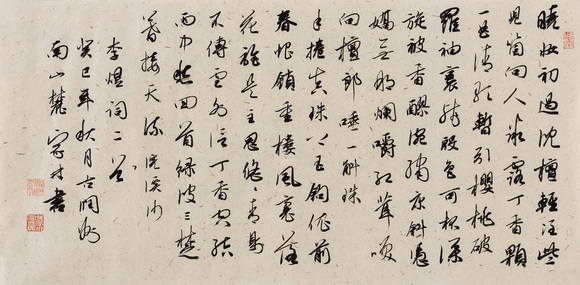 曉妝初過沈檀輕注些
兒箇向人微露丁香顆
一曲清歌暫引櫻桃破
羅袖裛殘殷色可杯深
旋被香醪涴繡床斜憑
嬌無那爛嚼紅茸唉
向檀郎唾一斛珠
手捲真珠上玉鉤依前
春恨鎖重樓風裏落
花誰是主思悠悠青鳥
不傳雲外信丁香空結
雨中愁回首綠波三楚
暮接天流浣溪沙
李煜詞二首
癸巳年秋月古潤州
南山麓書